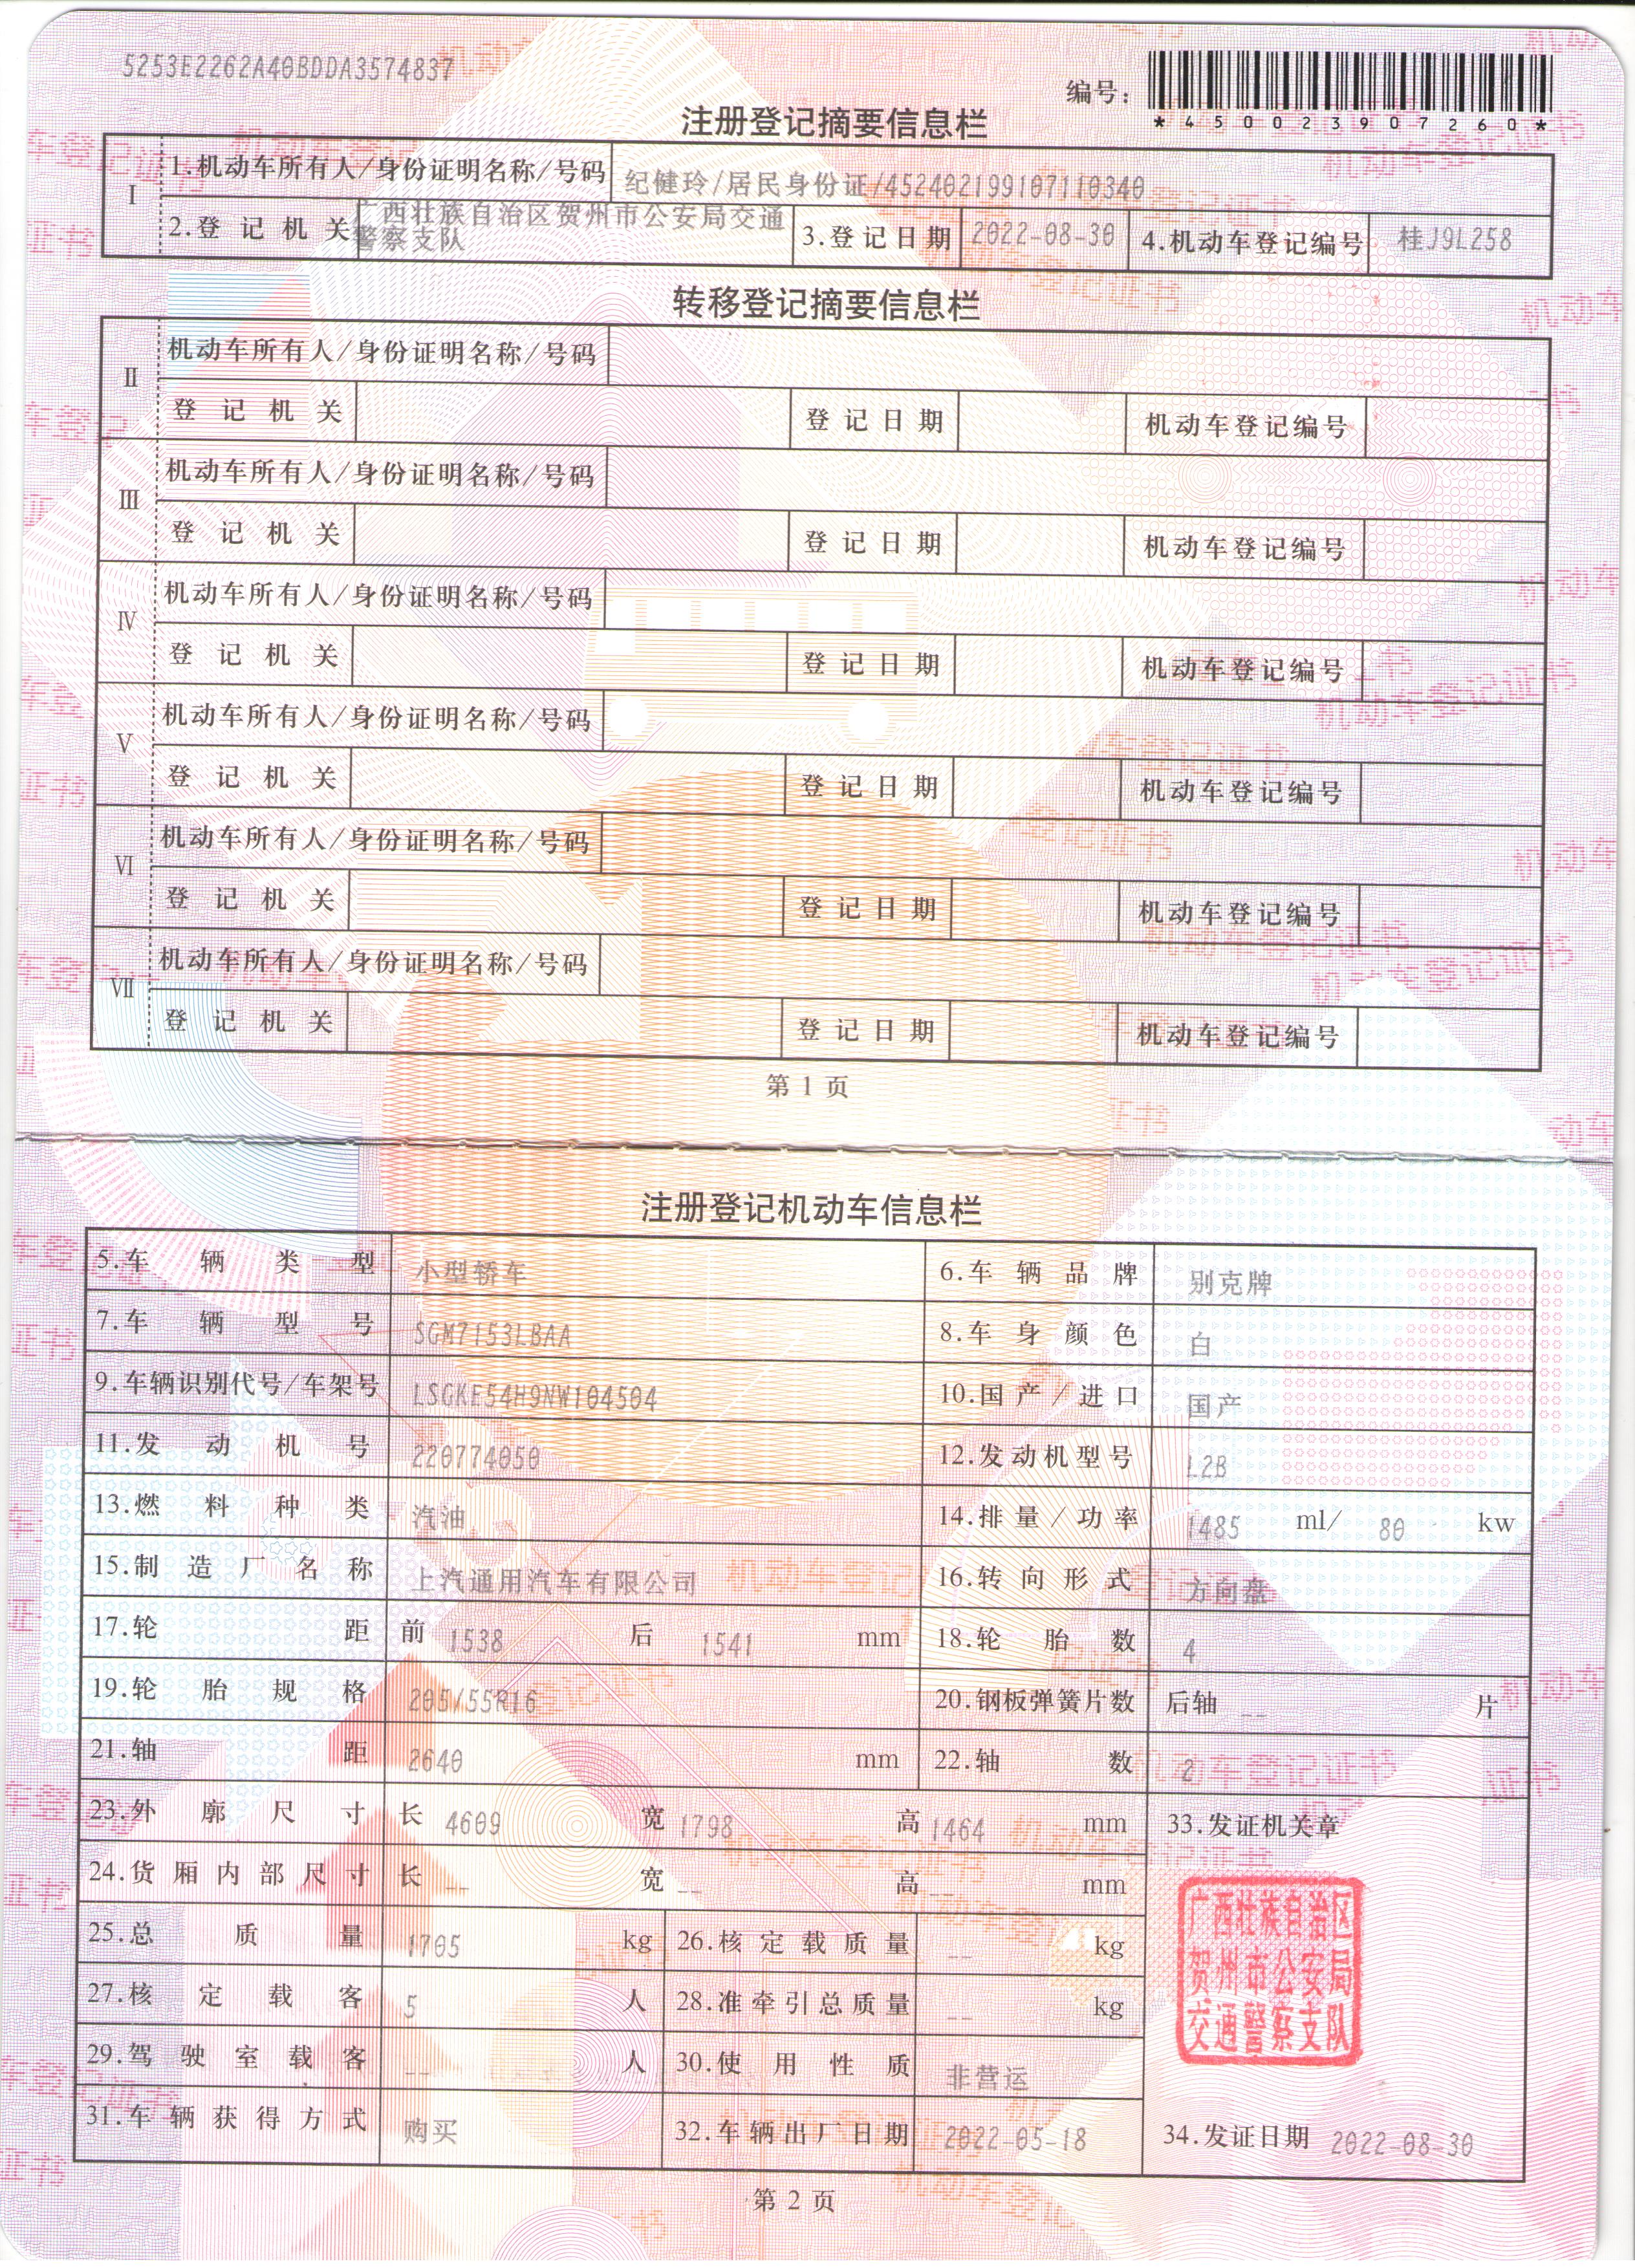 5253E2262A40BDDA3574837
编号：
*450023907260*
注册登记摘要信息栏
I
1.机动车所有人/身份证明名称/号码 纪健玲/居民身份证/452402199107110340
2.登记机关 广西壮族自治区贺州市公安局交通警察支队 3.登记日期 2022-08-30 4.机动车登记编号 桂J9L258
转移登记摘要信息栏
II
机动车所有人/身份证明名称/号码
登记机关 登记日期 机动车登记编号
III
机动车所有人/身份证明名称/号码
登记机关 登记日期 机动车登记编号
IV
机动车所有人/身份证明名称/号码
登记机关 登记日期 机动车登记编号
V
机动车所有人/身份证明名称/号码
登记机关 登记日期 机动车登记编号
VI
机动车所有人/身份证明名称/号码
登记机关 登记日期 机动车登记编号
VII
机动车所有人/身份证明名称/号码
登记机关 登记日期 机动车登记编号
第 1 页
注册登记机动车信息栏
5.车辆类型 小型轿车 6.车辆品牌 别克牌
7.车辆型号 SGM7153LBAA 8.车身颜色 白
9.车辆识别代号/车架号 LSGKE54H9NW104504 10.国产/进口 国产
11.发动机号 220774050 12.发动机型号 L2B
13.燃料种类 汽油 14.排量/功率 1485 ml/ 80 kw
15.制造厂名称 上汽通用汽车有限公司 16.转向形式 方向盘
17.轮距 前 1538 后 1541 mm 18.轮胎数 4
19.轮胎规格 205/55R16 20.钢板弹簧片数 后轴 -- 片
21.轴距 2640 mm 22.轴数 2
23.外廓尺寸 长 4609 宽 1798 高 1464 mm 33.发证机关章
24.货厢内部尺寸 长 -- 宽 -- 高 -- mm
25.总质量 1705 kg 26.核定载质量 -- kg
27.核定载客 5 人 28.准牵引总质量 -- kg
29.驾驶室载客 -- 人 30.使用性质 非营运
31.车辆获得方式 购买 32.车辆出厂日期 2022-05-18 34.发证日期 2022-08-30
广西壮族自治区
贺州市公安局
交通警察支队
第 2 页